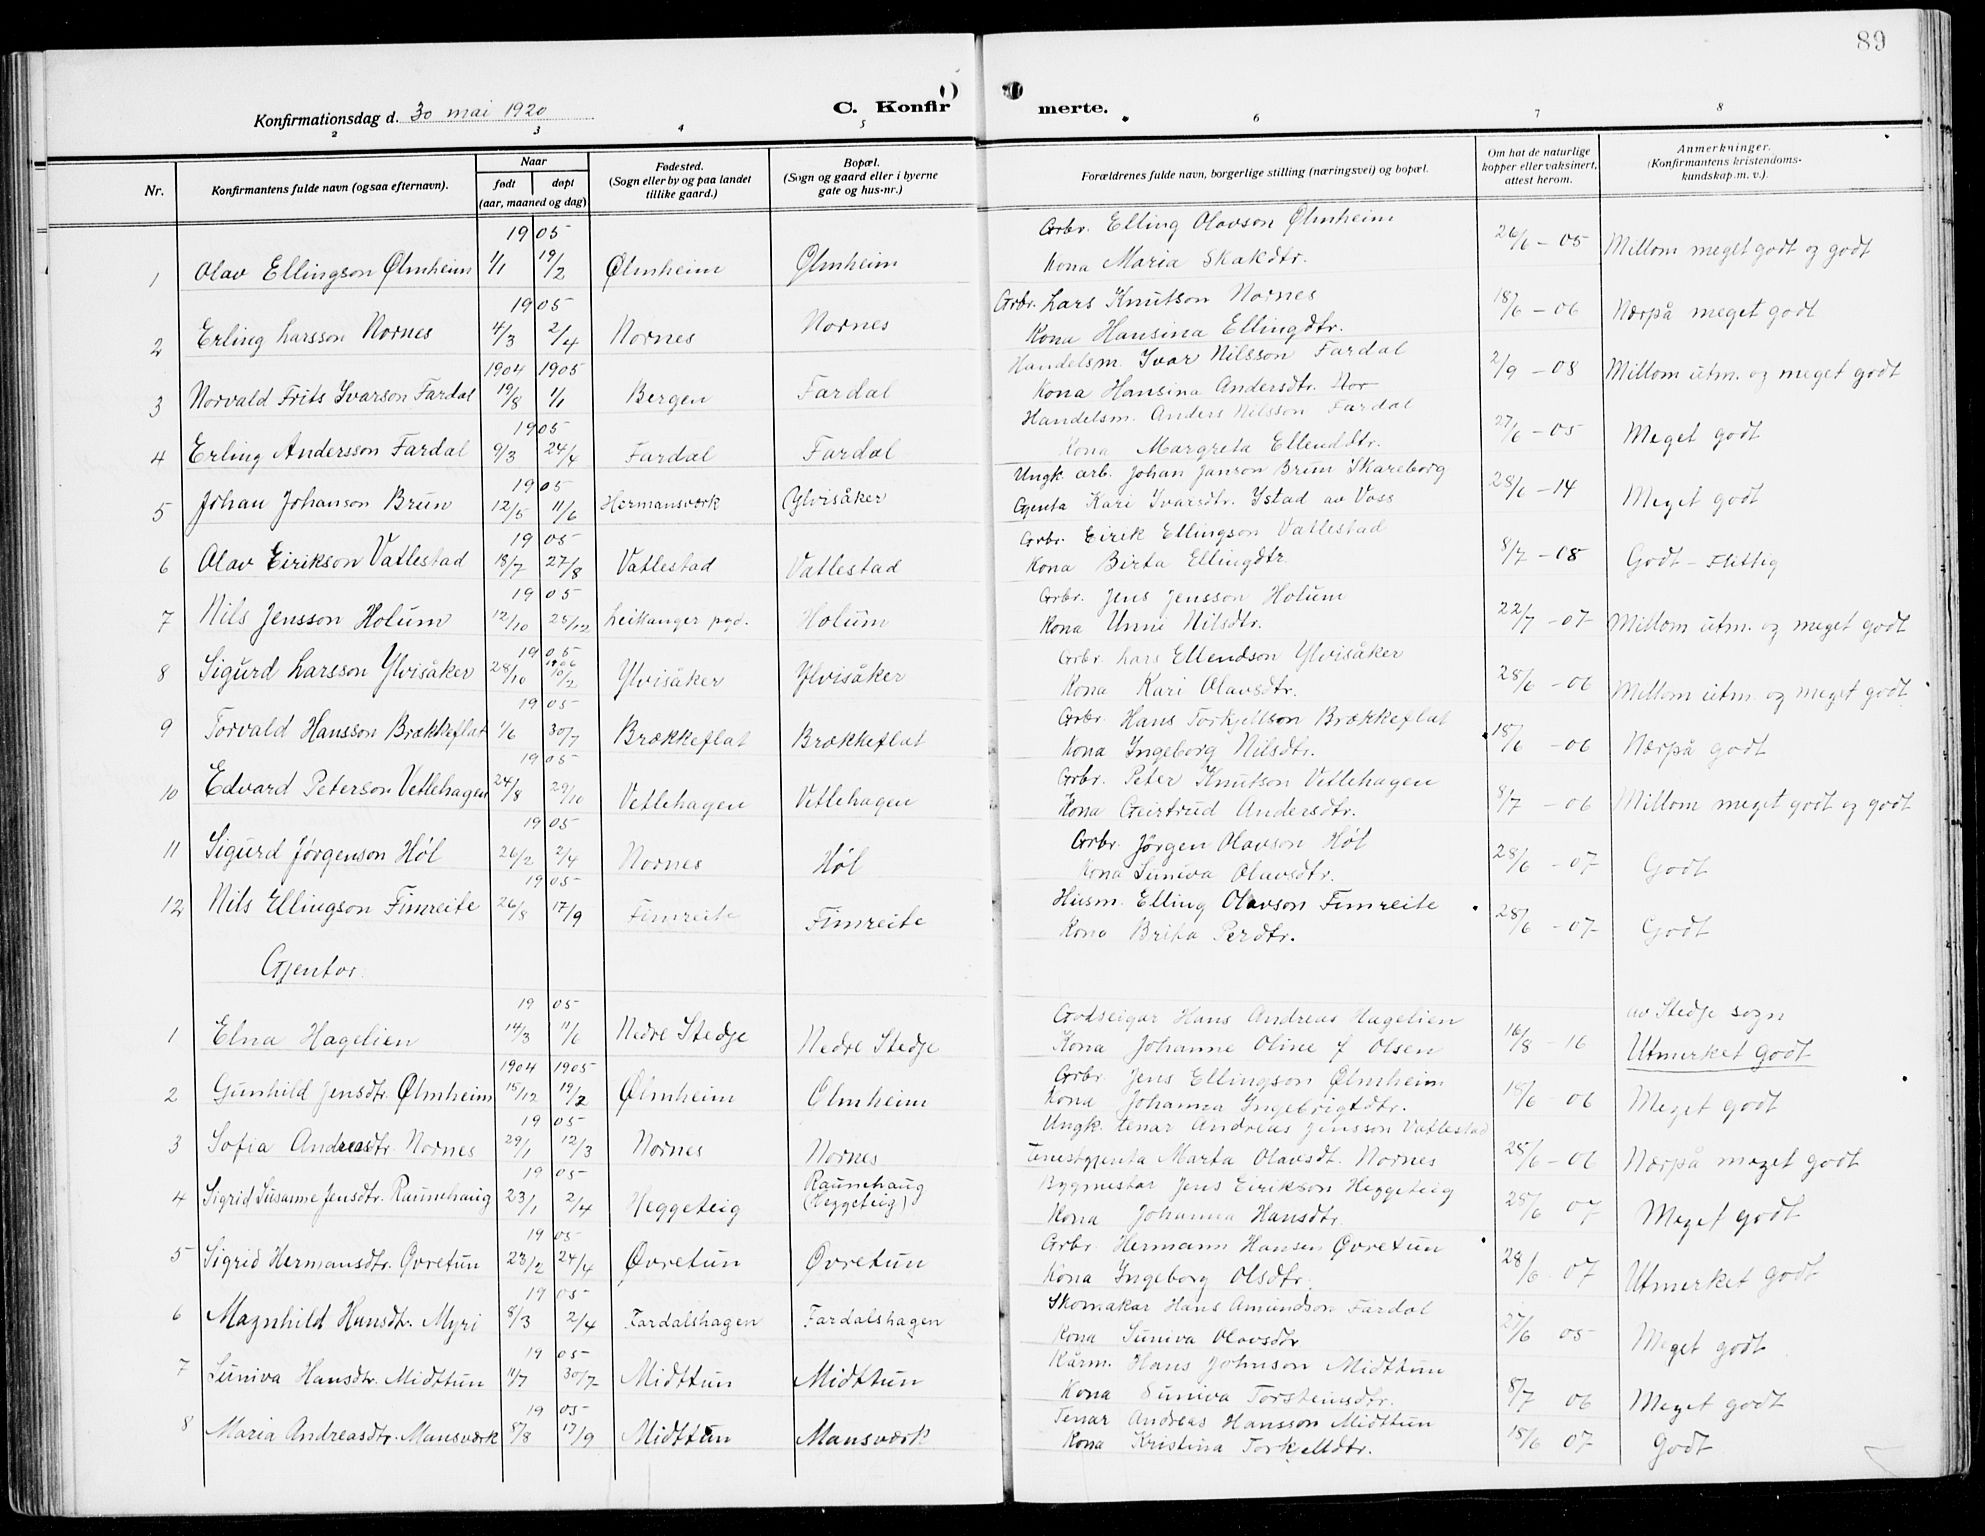 89
Konfirmationsdag d. 30 mai 1920
C. Konfir merte.
2 3 4 5 6 7 8
Nr.
Konfirmantens fulde navn (ogsaa efternavn).
Naar
født døpt
(aar, maaned og dag)
Fødested.
(Sogn eller by og paa landet
tillike gaard.)
Bopæl.
(Sogn og gaard eller i byerne
gate og hus-nr.)
Forældrenes fulde navn, borgerlige stilling (næringsvei) og bopæl.
Om hat de naturlige
kopper eller vaksinert,
attest herom.
Anmerkninger.
(Konfirmantens kristendoms-
kundskap m. v.).
1905 Grbr. Elling Olavson Ølmheim
1 Olav Ellingson Ølmheim 1/1 19/2 Ølmheim Ølmheim Kona Maria Skakdtr. 26/6 - 05 Millom meget godt og godt
1905 Grbr. Lars Knutson Nornes
2 Erling Larsson Nornes 4/3 2/4 Nornes Nornes Kona Hansina Ellingdtr. 18/6 - 06 Nærpå meget godt
1904 1905 Handelsm. Ivar Nilsson Fardal
3 Norvald Frits Ivarson Fardal 19/8 1/1 Bergen Fardal Kona Hansina Andersdtr. 2/9 - 08 Millom utm. og meget godt
1905 Handelsm. Anders Nilsson Fardal
4 Erling Andersson Fardal 9/3 24/4 Fardal Fardal Kona Margreta Ellenddtr. 27/6 - 05 Meget godt
1905 Ungk. arb. Johan Janson Brun Skareborg
5 Johan Johanson Brun 12/5 11/6 Hermansværk Ylvisåker Gjenta Kari Ivarsdtr. Ystad av Voss 28/6 - 14 Meget godt
1905 Grbr. Eirik Ellingson Vatlestad
6 Olav Eirikson Vatlestad 18/7 27/8 Vatlestad Vatlestad Kona Birta Ellingdtr. 8/7 - 08 Godt - Flittig
1905 Grbr. Jens Jensson Holum
7 Nils Jensson Holum 12/10 25/12 Leikanger pgd. Holum Kona Unni Nilsdtr. 22/7 - 07 Millom utm. og meget godt
1905 1906 Grbr. Lars Ellendson Ylvisåker
8 Sigurd Larsson Ylvisåker 28/10 10/2 Ylvisåker Ylvisåker Kona Kari Olavsdtr. 28/6 - 06 Millom utm. og meget godt
1905 Grbr. Hans Torkjellson Brækkeflat
9 Torvald Hansson Brækkeflat 1/6 30/7 Brækkeflat Brækkeflat Kona Ingeborg Nilsdtr. 18/6 - 06 Nærpå godt
1905 Grbr. Peter Knutson Vetlehagen
10 Edvard Peterson Vetlehagen 24/8 29/10 Vetlehagen Vetlehagen Kona Gurtrud Andersdtr. 8/7 - 06 Millom meget godt og godt
1905 Grbr. Jørgen Olavson Høl
11 Sigurd Jørgenson Høl 26/2 2/4 Nornes Høl Kona Suniva Olavsdtr. 28/6 - 07 Godt
1905 Husm. Elling Olavson Fimreite
12 Nils Ellingson Fimreite 26/8 17/9 Fimreite Fimreite Kona Brita Perdtr. 28/6 - 07 Godt
Gjentor.
1905 Godseigar Hans Andreas Hagelien av Stedje sogn
1 Elna Hagelien 14/3 11/6 Nedre Stedje Nedre Stedje Kona Johanne Oline f. Olsen 16/8 - 16 Utmerket godt
1904 1905 Grbr. Jens Ellingson Ølmheim
2 Gunhild Jensdtr. Ølmheim 15/12 19/2 Ølmheim Ølmheim Kona Johanna Ingebrigtdtr. 18/6 - 06 Meget godt
1905 Ungk. tenar Andreas Jensson Vatlestad
3 Sofia Andreasdtr. Nornes 29/1 12/3 Nornes Nornes Tenestgjenta Marta Olavsdt. Nornes 28/6 - 06 Nærpå meget godt
1905 Raunehaug Bygmestar Jens Eirikson Heggeteig
4 Sigrid Susanne Jensdtr. Raunehaug 23/1 2/4 Heggeteig (Heggeteig) Kona Johanna Hansdtr. 28/6 07 Meget godt
1905 Grbr. Hermann Hansen Øvretun
5 Sigrid Hermansdtr. Øvretun 23/2 24/4 Øvretun Øvretun Kona Ingeborg Olsdtr. 28/6 07 Utmerket godt
1905 Skomakar Hans Amundson Fardal
6 Magnhild Hansdtr. Myri 8/3 2/4 Fardalshagen Fardalshagen Kona Suniva Olavsdtr. 27/6 05 Meget godt
1905 Kårm. Hans Johnson Midttun
7 Suniva Hansdtr. Midttun 11/7 30/7 Midttun Midttun Kona Suniva Torsteinsdtr. 8/7 06 Meget godt
1905 Tenar Andreas Hansson Midttun
8 Maria Andreasdtr. Mansværk 8/8 17/9 Midttun Mansværk Kona Kristina Torkelldtr. 18/6 07 Godt